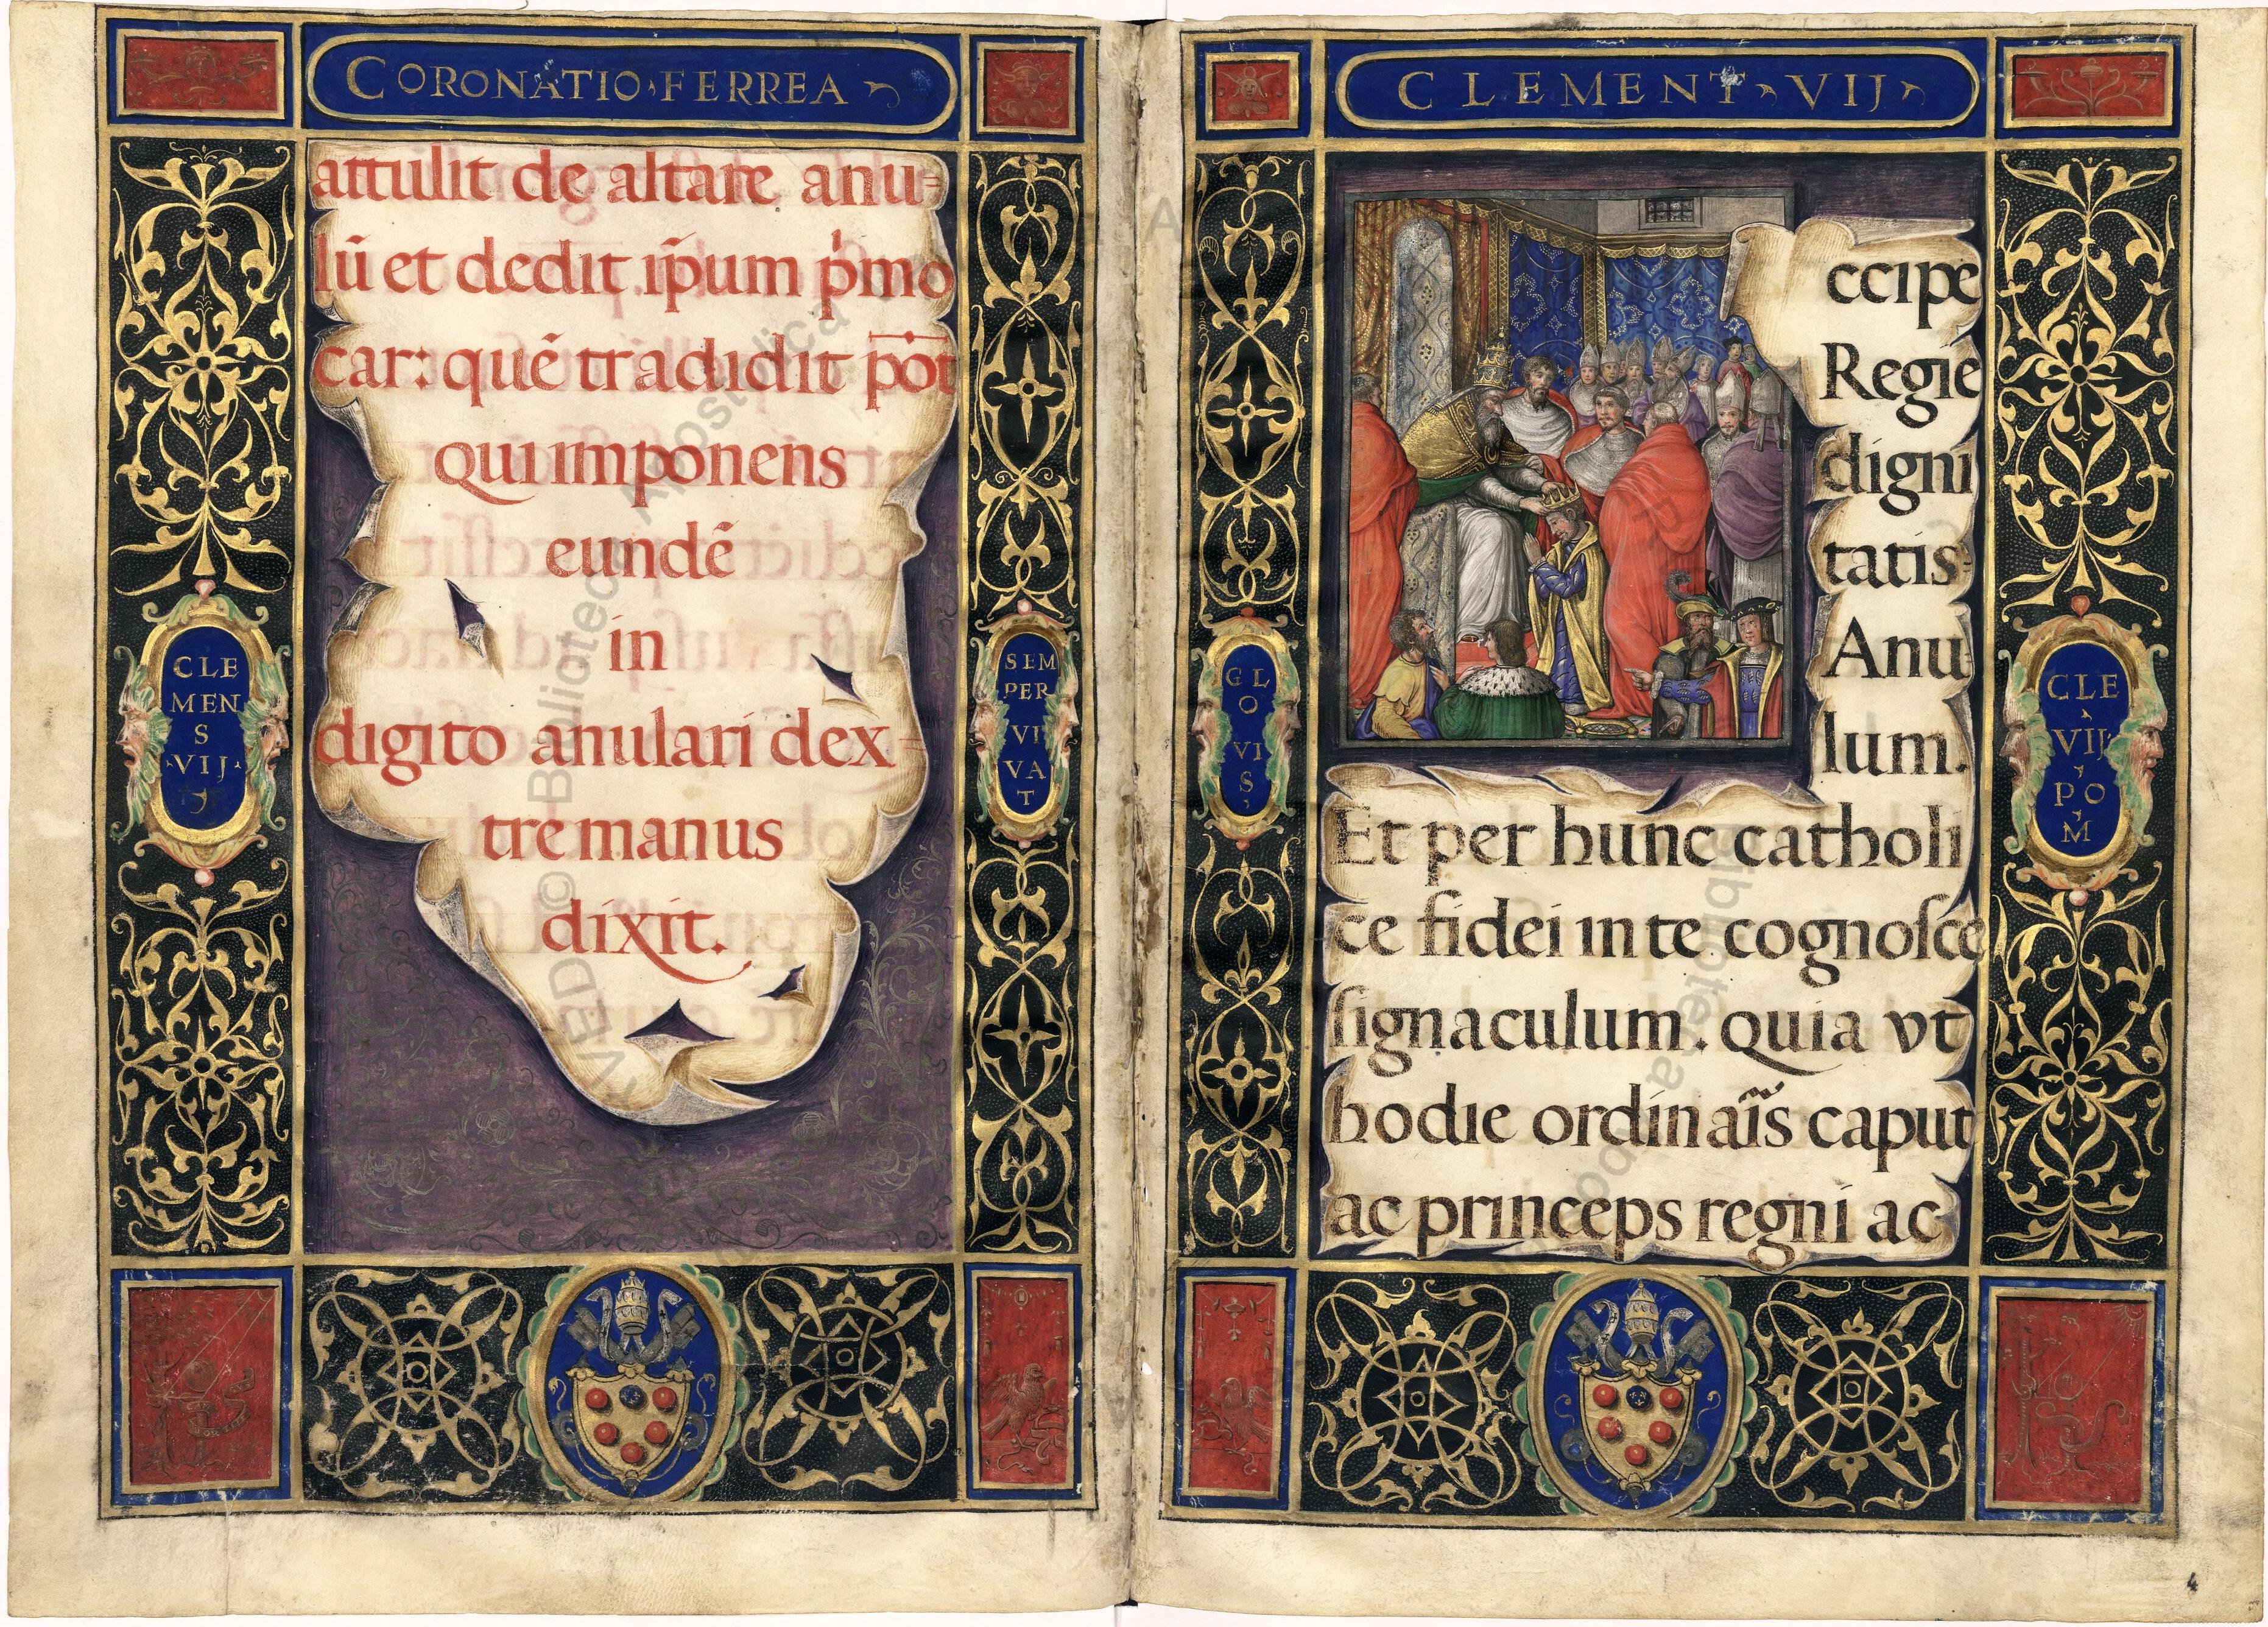 CORONATIO FERREA
attulit de altare anu=
lū et dedit ip̄um pʳmo
car: quē tradidit p̄ot
qui imponens
eundē
in
digito anulari dex-
tre manus
dixit.
CLE
MEN
S
VIJ
SEM
PER
VI
VA
T
CLEMENT VIJ
ccipe
Regie
digni
tatis-
Anu-
lum.
Et per hunc catholi
ce fidei in te cognoſce
ſignaculum. quia vt
hodie ordinaīs caput
ac princeps regni ac
GL
O
VI
S
CLE
VIJ
PO
M
4
© Biblioteca Apostolica
Biblioteca Apo